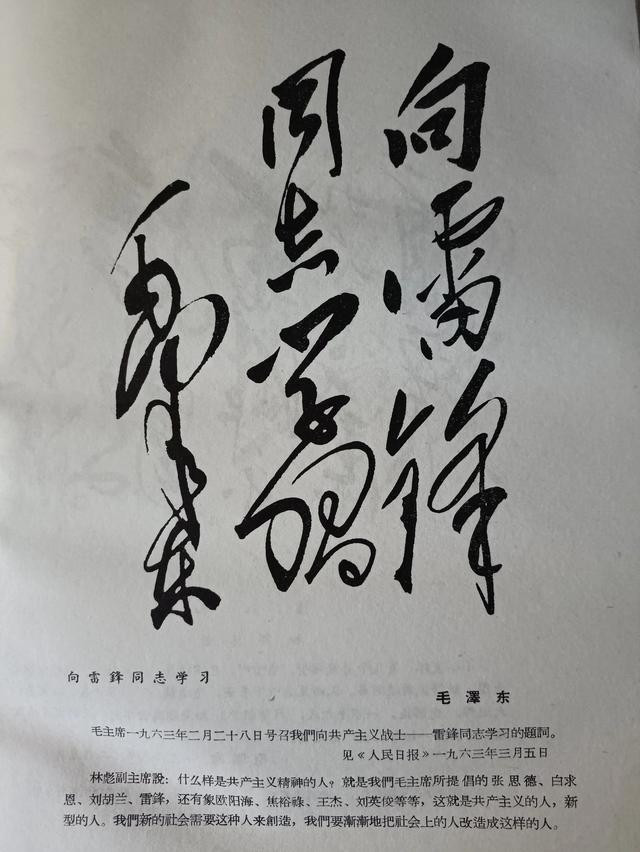 向雷鋒
同志学習
毛澤东
向雷鋒同志学习
毛澤东
毛主席一九六三年二月二十八日号召我們向共产主义战士——雷鋒同志学习的題詞。
見《人民日报》一九六三年三月五日
林彪副主席說：什么样是共产主义精神的人？就是我們毛主席所提倡的张思德、白求
恩、刘胡兰、雷鋒，还有象欧阳海、焦裕祿、王杰、刘英俊等等，这就是共产主义的人，新
型的人。我們新的社会需要这种人来創造，我們要漸漸地把社会上的人改造成这样的人。